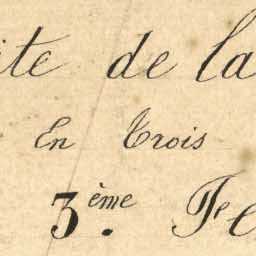 ite de la
En Trois
3.ème Fe